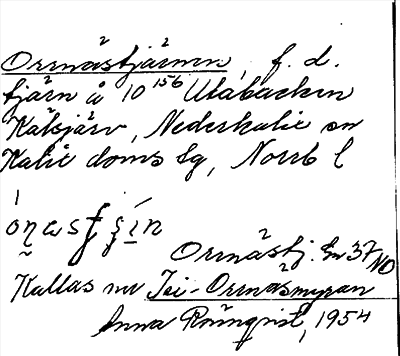 Ormästjärnen, f. d.
tjärn å 10 156 Utabacken
Kälsjärv, Nederkalix sn
Kalix doms. lg, Norrb l
Ormästj. En 37 NO
Kallas nu Isi-Ormäsmyran
Anna Rönnqvist, 1954